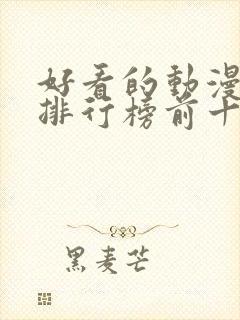 好看的動漫
排行榜前十
黑麦芒